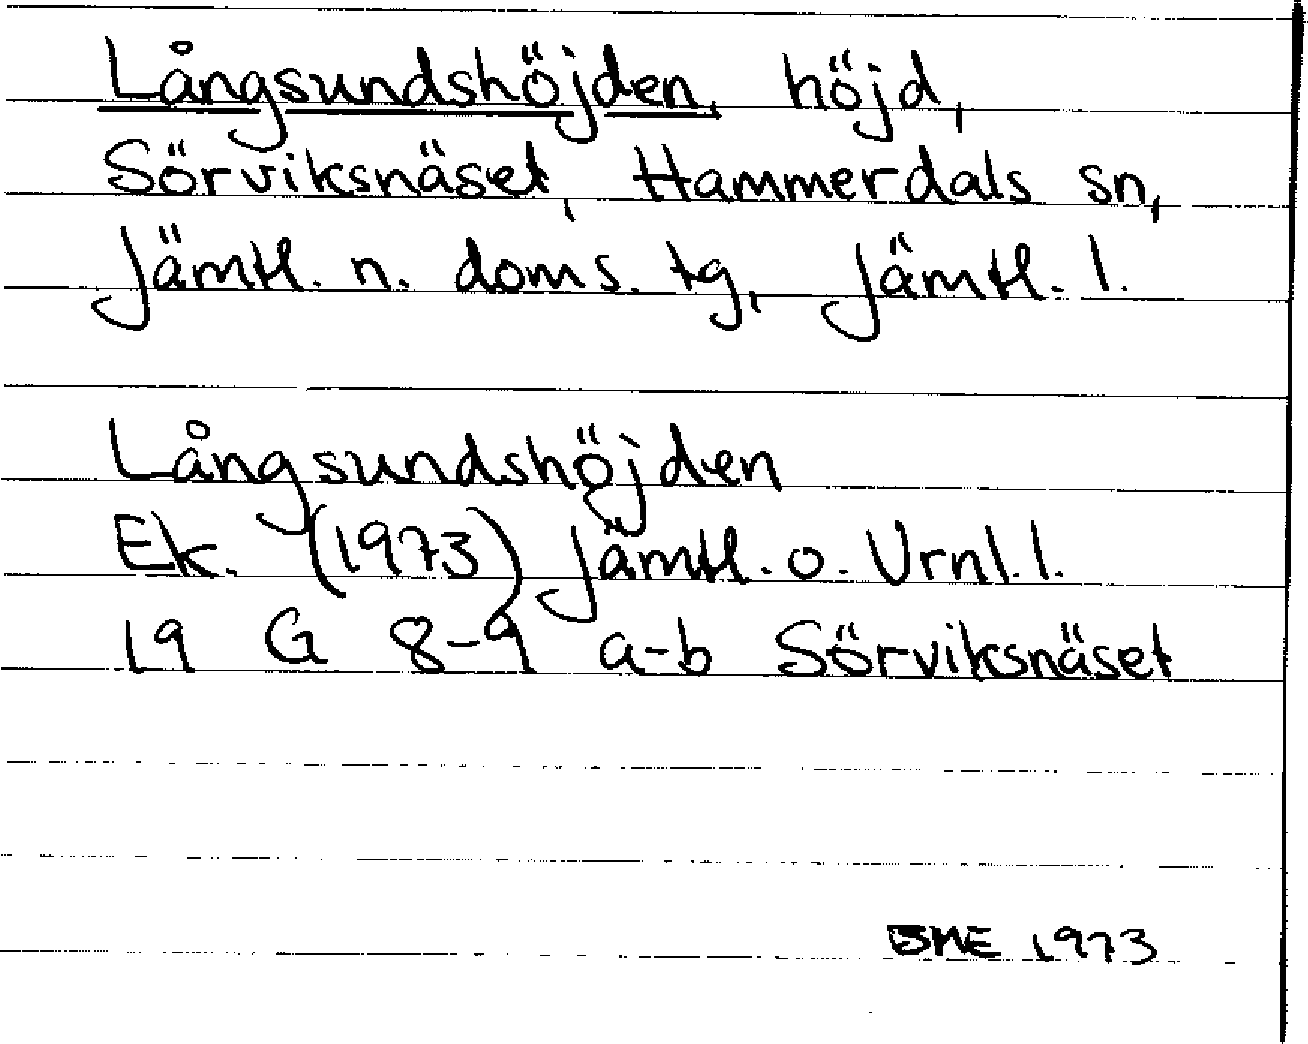 Långsundshöjden, höjd,
Sörviksnäset, Hammerdals sn,
Jämtl. n. doms. tg, Jämtl. l.
Långsundshöjden
Ek. (1973) Jämtl. o. Vrnl. l.
19 G 8-9 a-b Sörviksnäset
1973